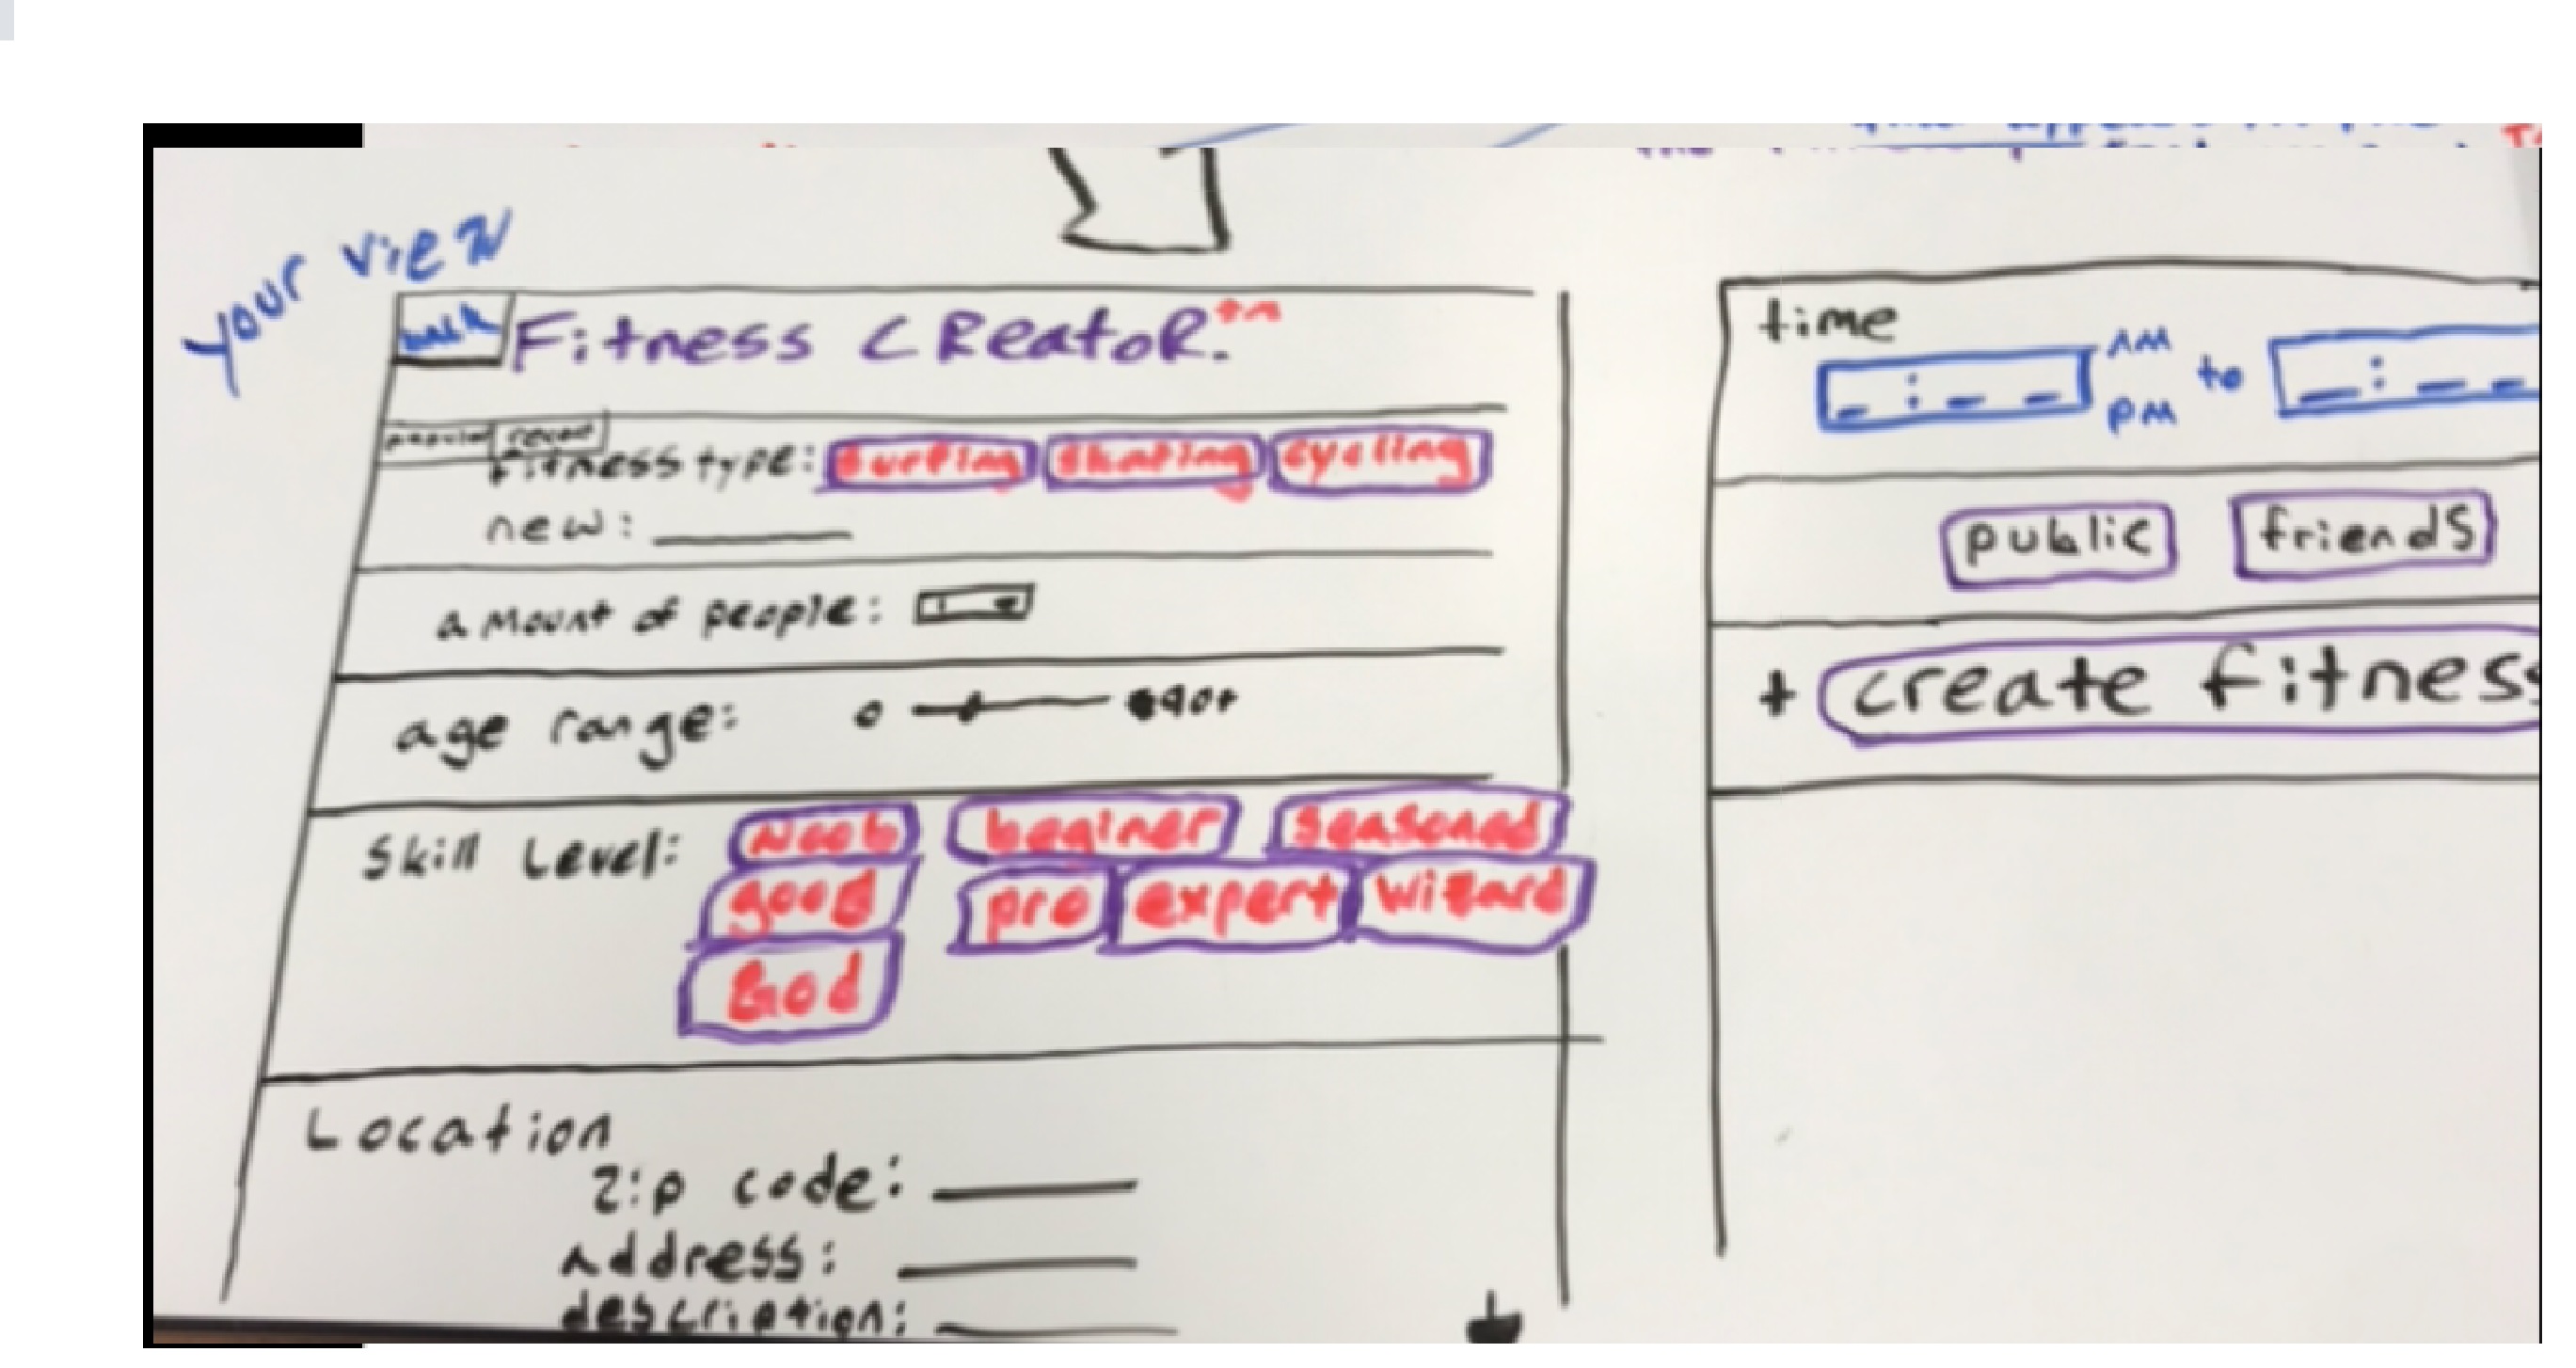 your view
back
Fitness CReatoR. tm
popular recent
Fitness type: surfing skating cycling
new:
amount of people: 1
age range: 0 90+
Skill Level: Noob beginer seasoned
good pro expert wizard
God
Location
zip code:
Address:
description:
time
_ : _ _ AM
PM
to _ : _ _
public friends
+ create fitness